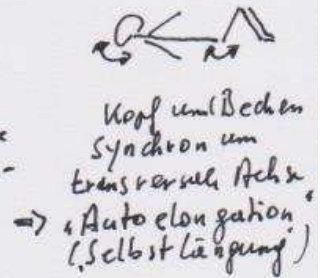 Kopf und Becken
synchron um
transversale Achse
=> "Autoelongation"
(Selbstlängung)